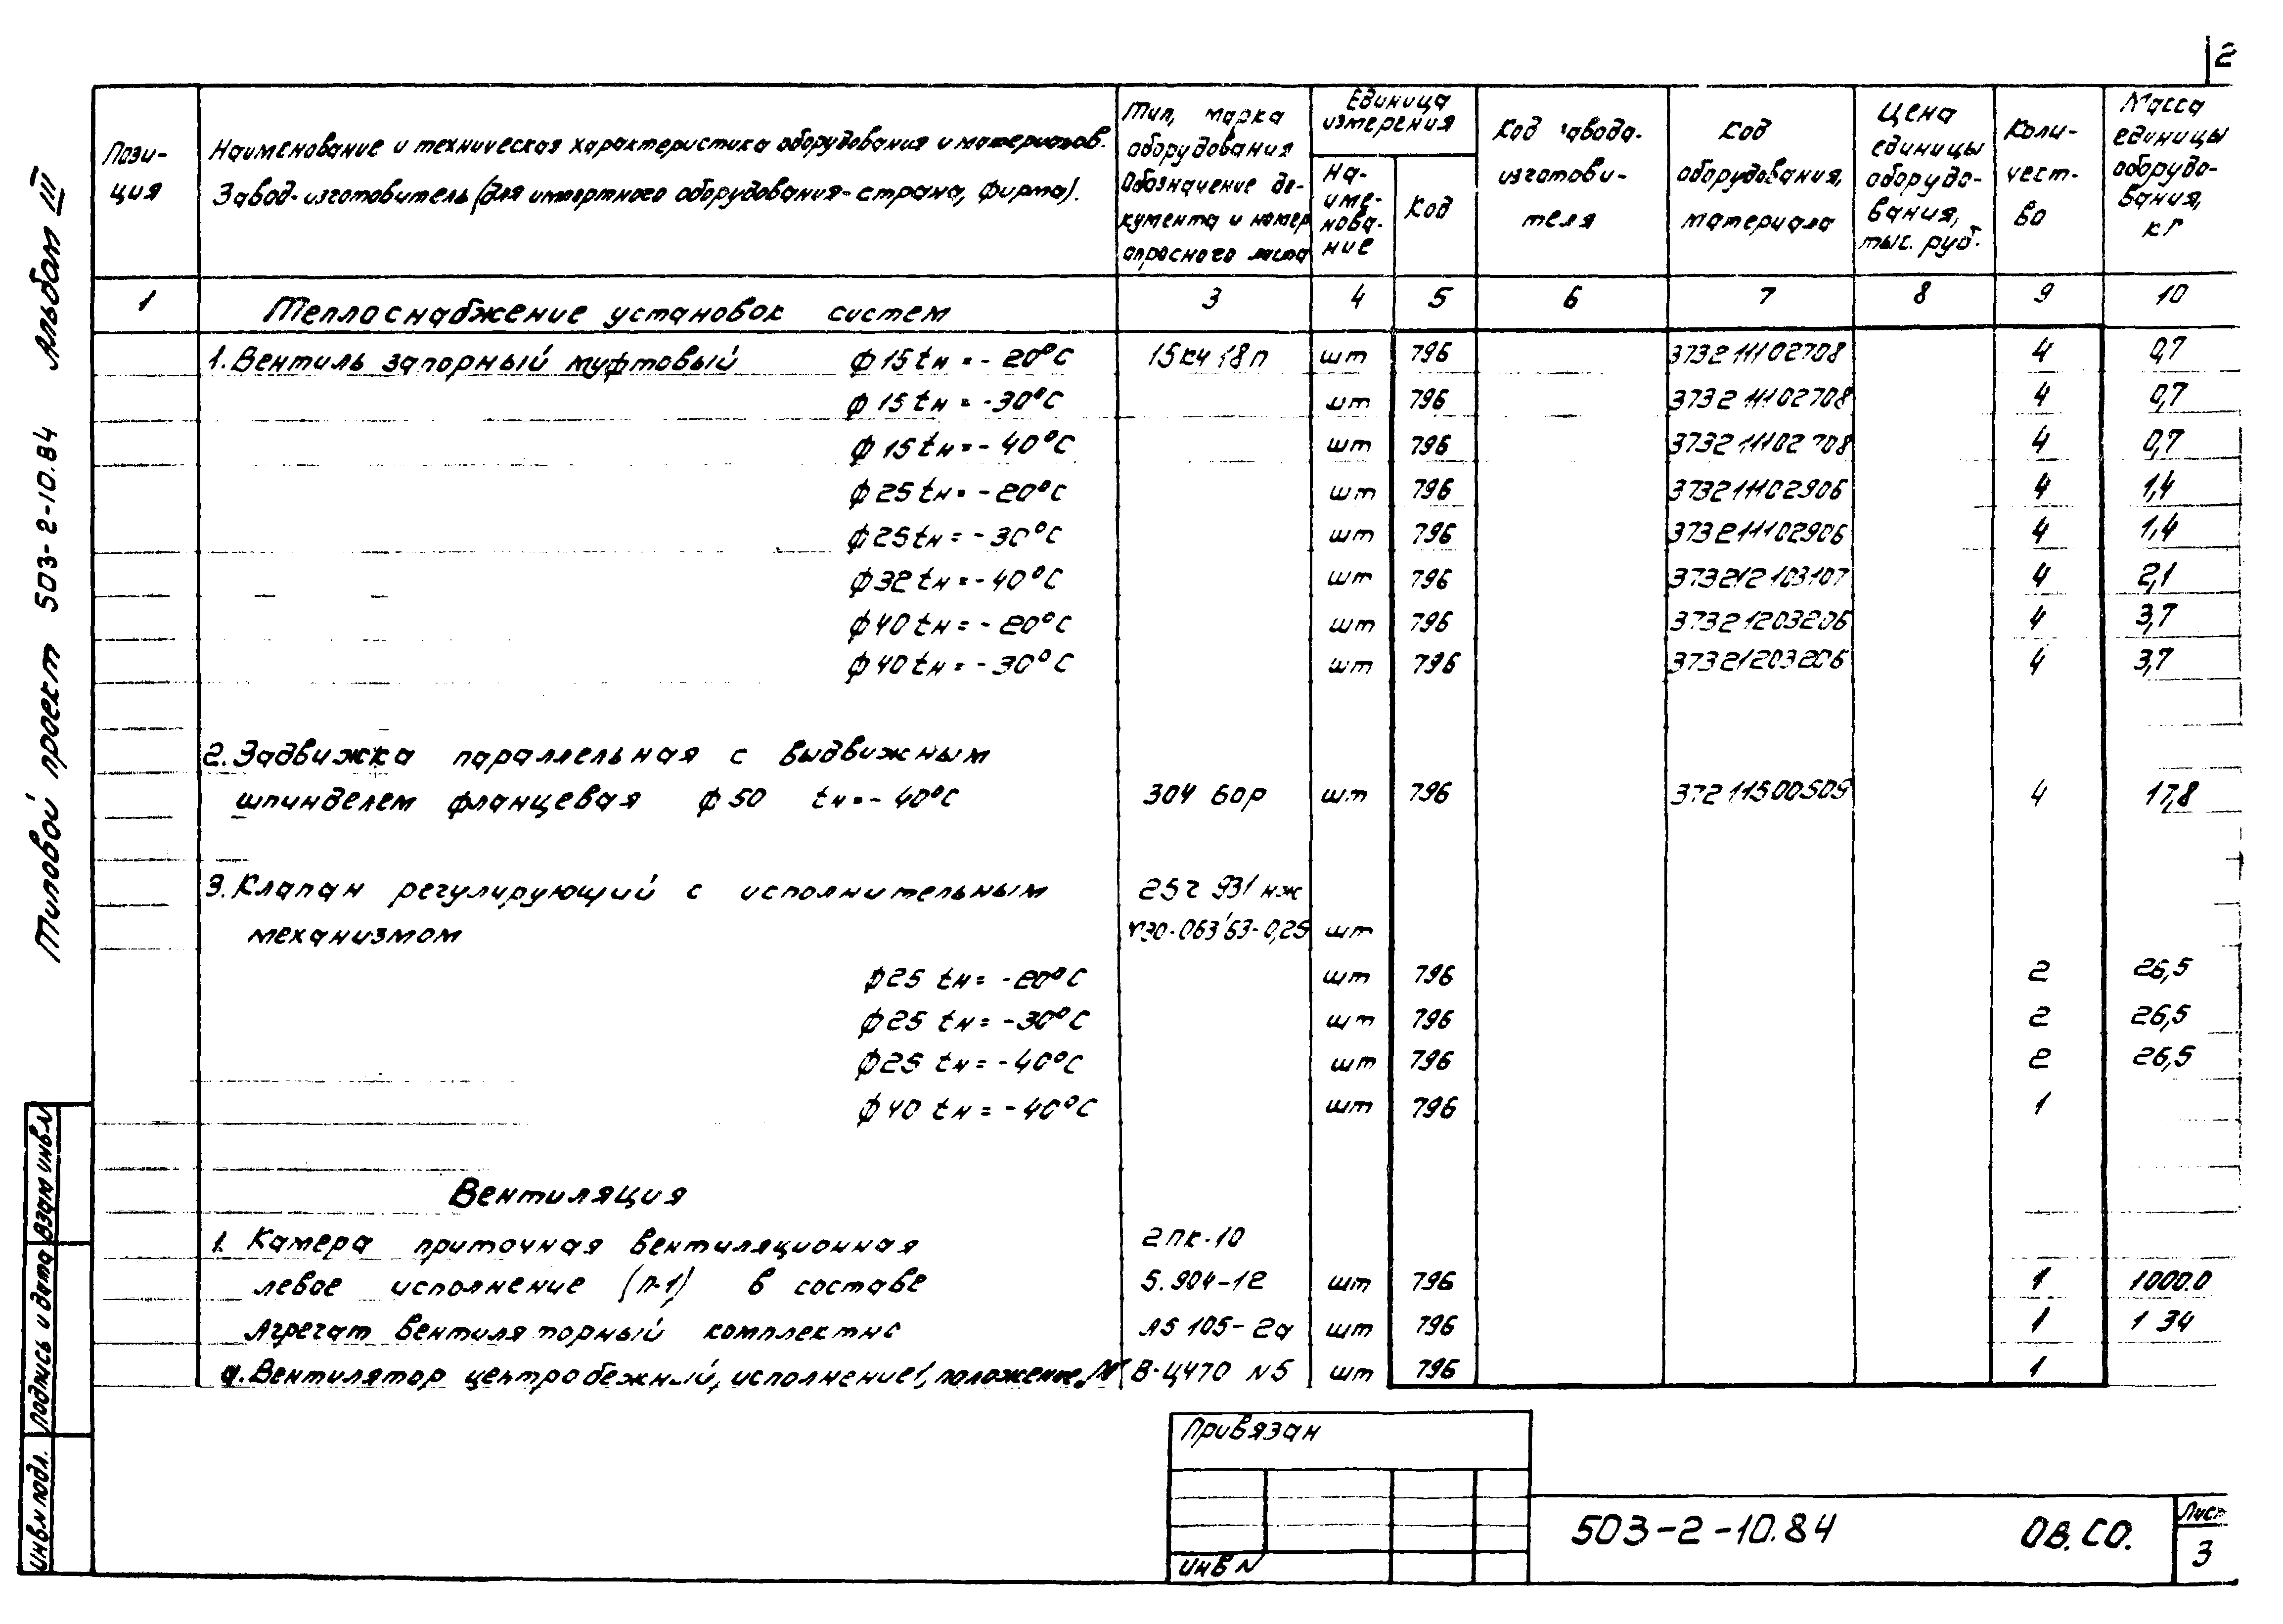 2
Типовой проект 503-2-10.84 Альбом III
Пози-
ция
Наименование и техническая характеристика оборудования и материалов.
Завод-изготовитель (для импортного оборудования-страна, фирма).
Тип, марка
оборудования
Обозначение до-
кумента и номер
опросного листа
Единица
измерения
На-
име-
нова-
ние
Код
Код завода-
изготови-
теля
Код
оборудования,
материала
Цена
единицы
оборудо-
вания,
тыс. руб.
Коли-
чест-
во
Масса
единицы
оборудо-
вания,
кг
1 Теплоснабжение установок систем 3 4 5 6 7 8 9 10
1. Вентиль запорный муфтовый ф 15 tн = - 20°С 15кч 18п шт 796 373211102708 4 0,7
ф 15 tн = -30°С шт 796 373211102708 4 0,7
ф 15 tн = - 40°С шт 796 373211102708 4 0,7
ф 25 tн = -20°С шт 796 373211102906 4 1,4
ф 25 tн = -30°С шт 796 373211102906 4 1,4
ф 32 tн = -40°С шт 796 373212103107 4 2,1
ф 40 tн = - 20°С шт 796 37321203206 4 3,7
ф 40 tн = -30°С шт 796 37321203206 4 3,7
2. Задвижка параллельная с выдвижным
шпинделем фланцевая ф 50 tн = - 40°С 30ч 6бр шт 796 4 17,8
3. Клапан регулирующий с исполнительным 25ч 931 нж
механизмом 63-0,25 шт
ф25 tн = -20°С шт 796 2 26,5
ф25 tн = -30°С шт 796 2 26,5
ф25 tн = -40°С шт 796 2 26,5
ф40 tн = -40°С шт 796 1
Вентиляция
1. Камера приточная вентиляционная 2пк-10
левое исполнение (п-1) в составе 5.904-12 шт 796 1 1000.0
Агрегат вентиляторный комплектно А5 105-2а шт 796 1 134
а. Вентилятор центробежный, исполнение 1, положение В-Ц4 70 N5 шт 796 1
Инв N подл. Подпись и дата Взам инв N
Привязан
Инв N
503-2-10.84 ОВ.СО.
Лист
3